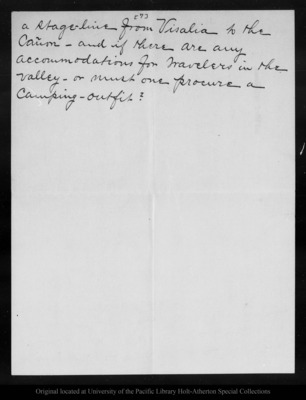 [?]
a stage-line from Visalia to the
Cañon - and if there are any
accommodations for travelers in the
valley - or must one procure a
camping-outfit?
Original located at University of the Pacific Library Holt-Atherton Special Collections